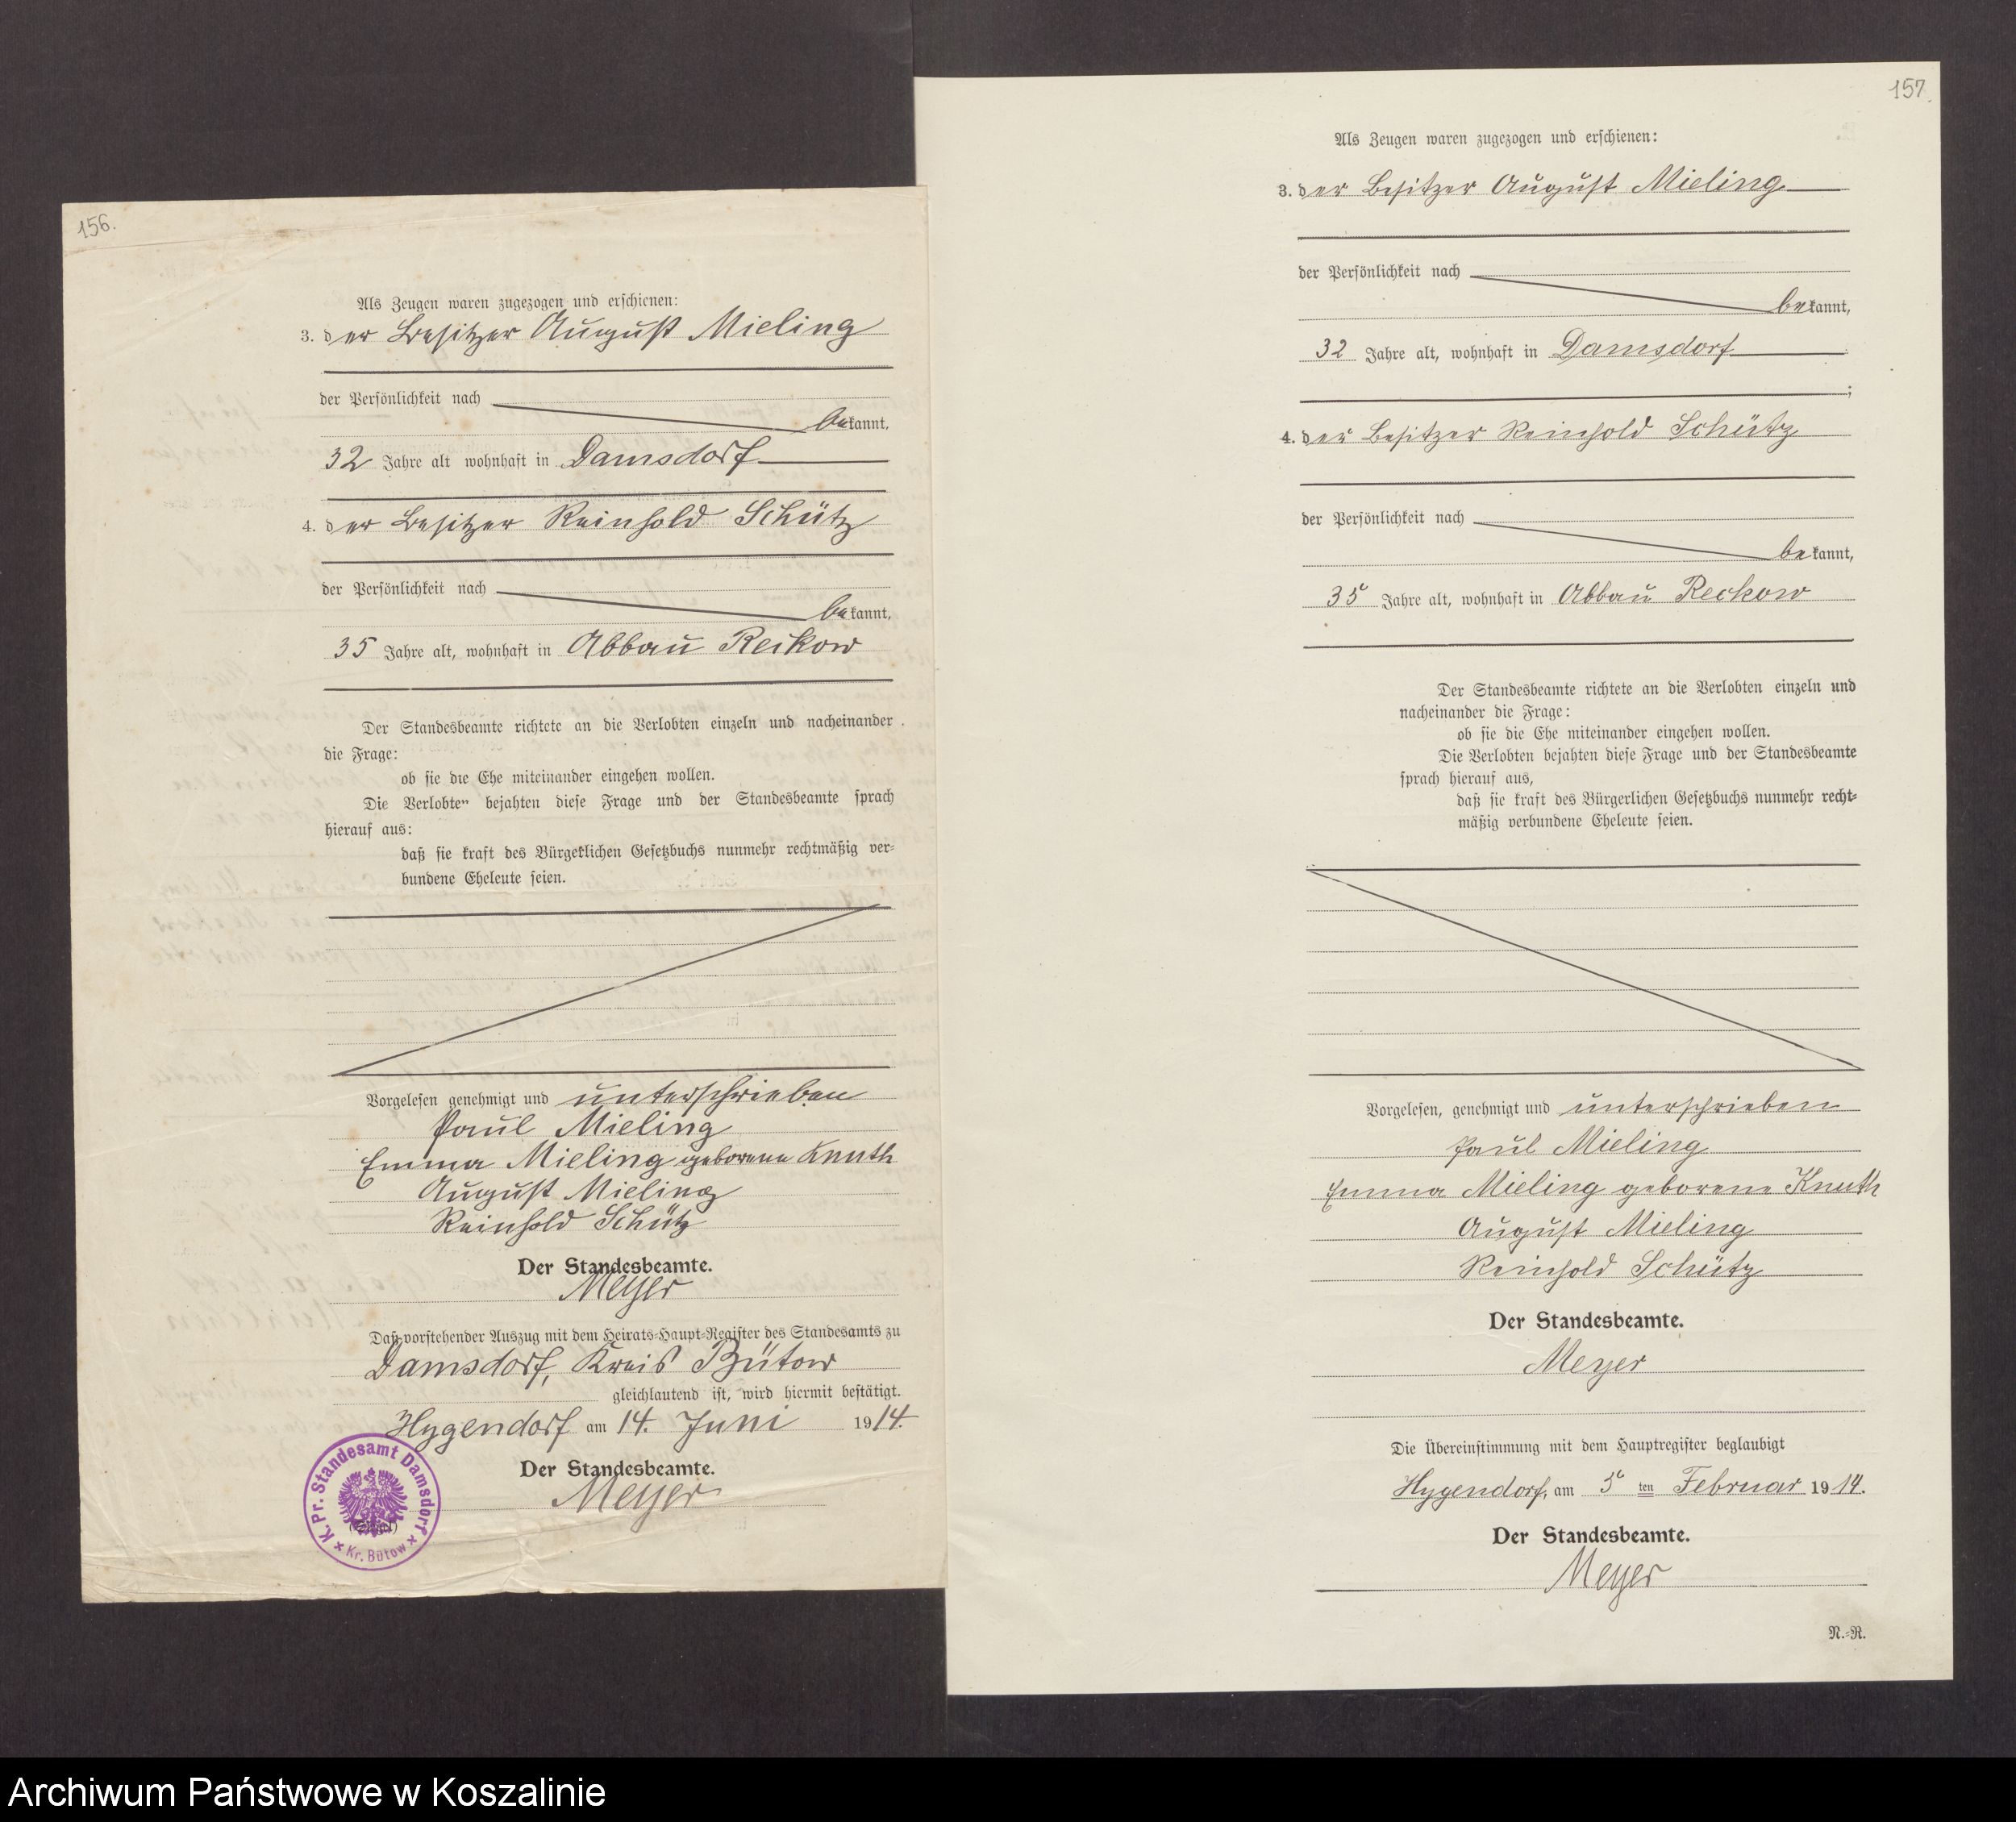 156.
Als Zeugen waren zugezogen und erschienen:
3. der Besitzer August Mieling
der Persönlichkeit nach
bekannt,
32 Jahre alt wohnhaft in Damsdorf
4. der Besitzer Reinhold Schütz
der Persönlichkeit nach
bekannt,
35 Jahre alt, wohnhaft in Abbau Reckow
Der Standesbeamte richtete an die Verlobten einzeln und nacheinander
die Frage:
ob sie die Ehe miteinander eingehen wollen.
Die Verlobten bejahten diese Frage und der Standesbeamte sprach
hierauf aus:
daß sie kraft des Bürgerlichen Gesetzbuchs nunmehr rechtmäßig ver-
bundene Eheleute seien.
Vorgelesen genehmigt und unterschrieben
Paul Mieling
Emma Mieling geborene Knuth
August Mieling
Reinhold Schütz
Der Standesbeamte.
Meyer
Daß vorstehender Auszug mit dem Heirats-Haupt-Register des Standesamts zu
Damsdorf, Kreis Bütow
gleichlautend ist, wird hiermit bestätigt.
Hygendorf am 14. Juni 1914.
Der Standesbeamte.
Meyer
(Siegel)
K. Pr. Standesamt Damsdorf
* Kr. Bütow *
157.
Als Zeugen waren zugezogen und erschienen:
3. der Besitzer August Mieling
der Persönlichkeit nach
bekannt,
32 Jahre alt, wohnhaft in Damsdorf
;
4. der Besitzer Reinhold Schütz
der Persönlichkeit nach
bekannt,
35 Jahre alt, wohnhaft in Abbau Reckow
Der Standesbeamte richtete an die Verlobten einzeln und
nacheinander die Frage:
ob sie die Ehe miteinander eingehen wollen.
Die Verlobten bejahten diese Frage und der Standesbeamte
sprach hierauf aus,
daß sie kraft des Bürgerlichen Gesetzbuchs nunmehr recht-
mäßig verbundene Eheleute seien.
Vorgelesen, genehmigt und unterschrieben
Paul Mieling
Emma Mieling geborene Knuth
August Mieling
Reinhold Schütz
Der Standesbeamte.
Meyer
Die Übereinstimmung mit dem Hauptregister beglaubigt
Hygendorf, am 5 ten Februar 1914.
Der Standesbeamte.
Meyer
N.-R.
Archiwum Państwowe w Koszalinie